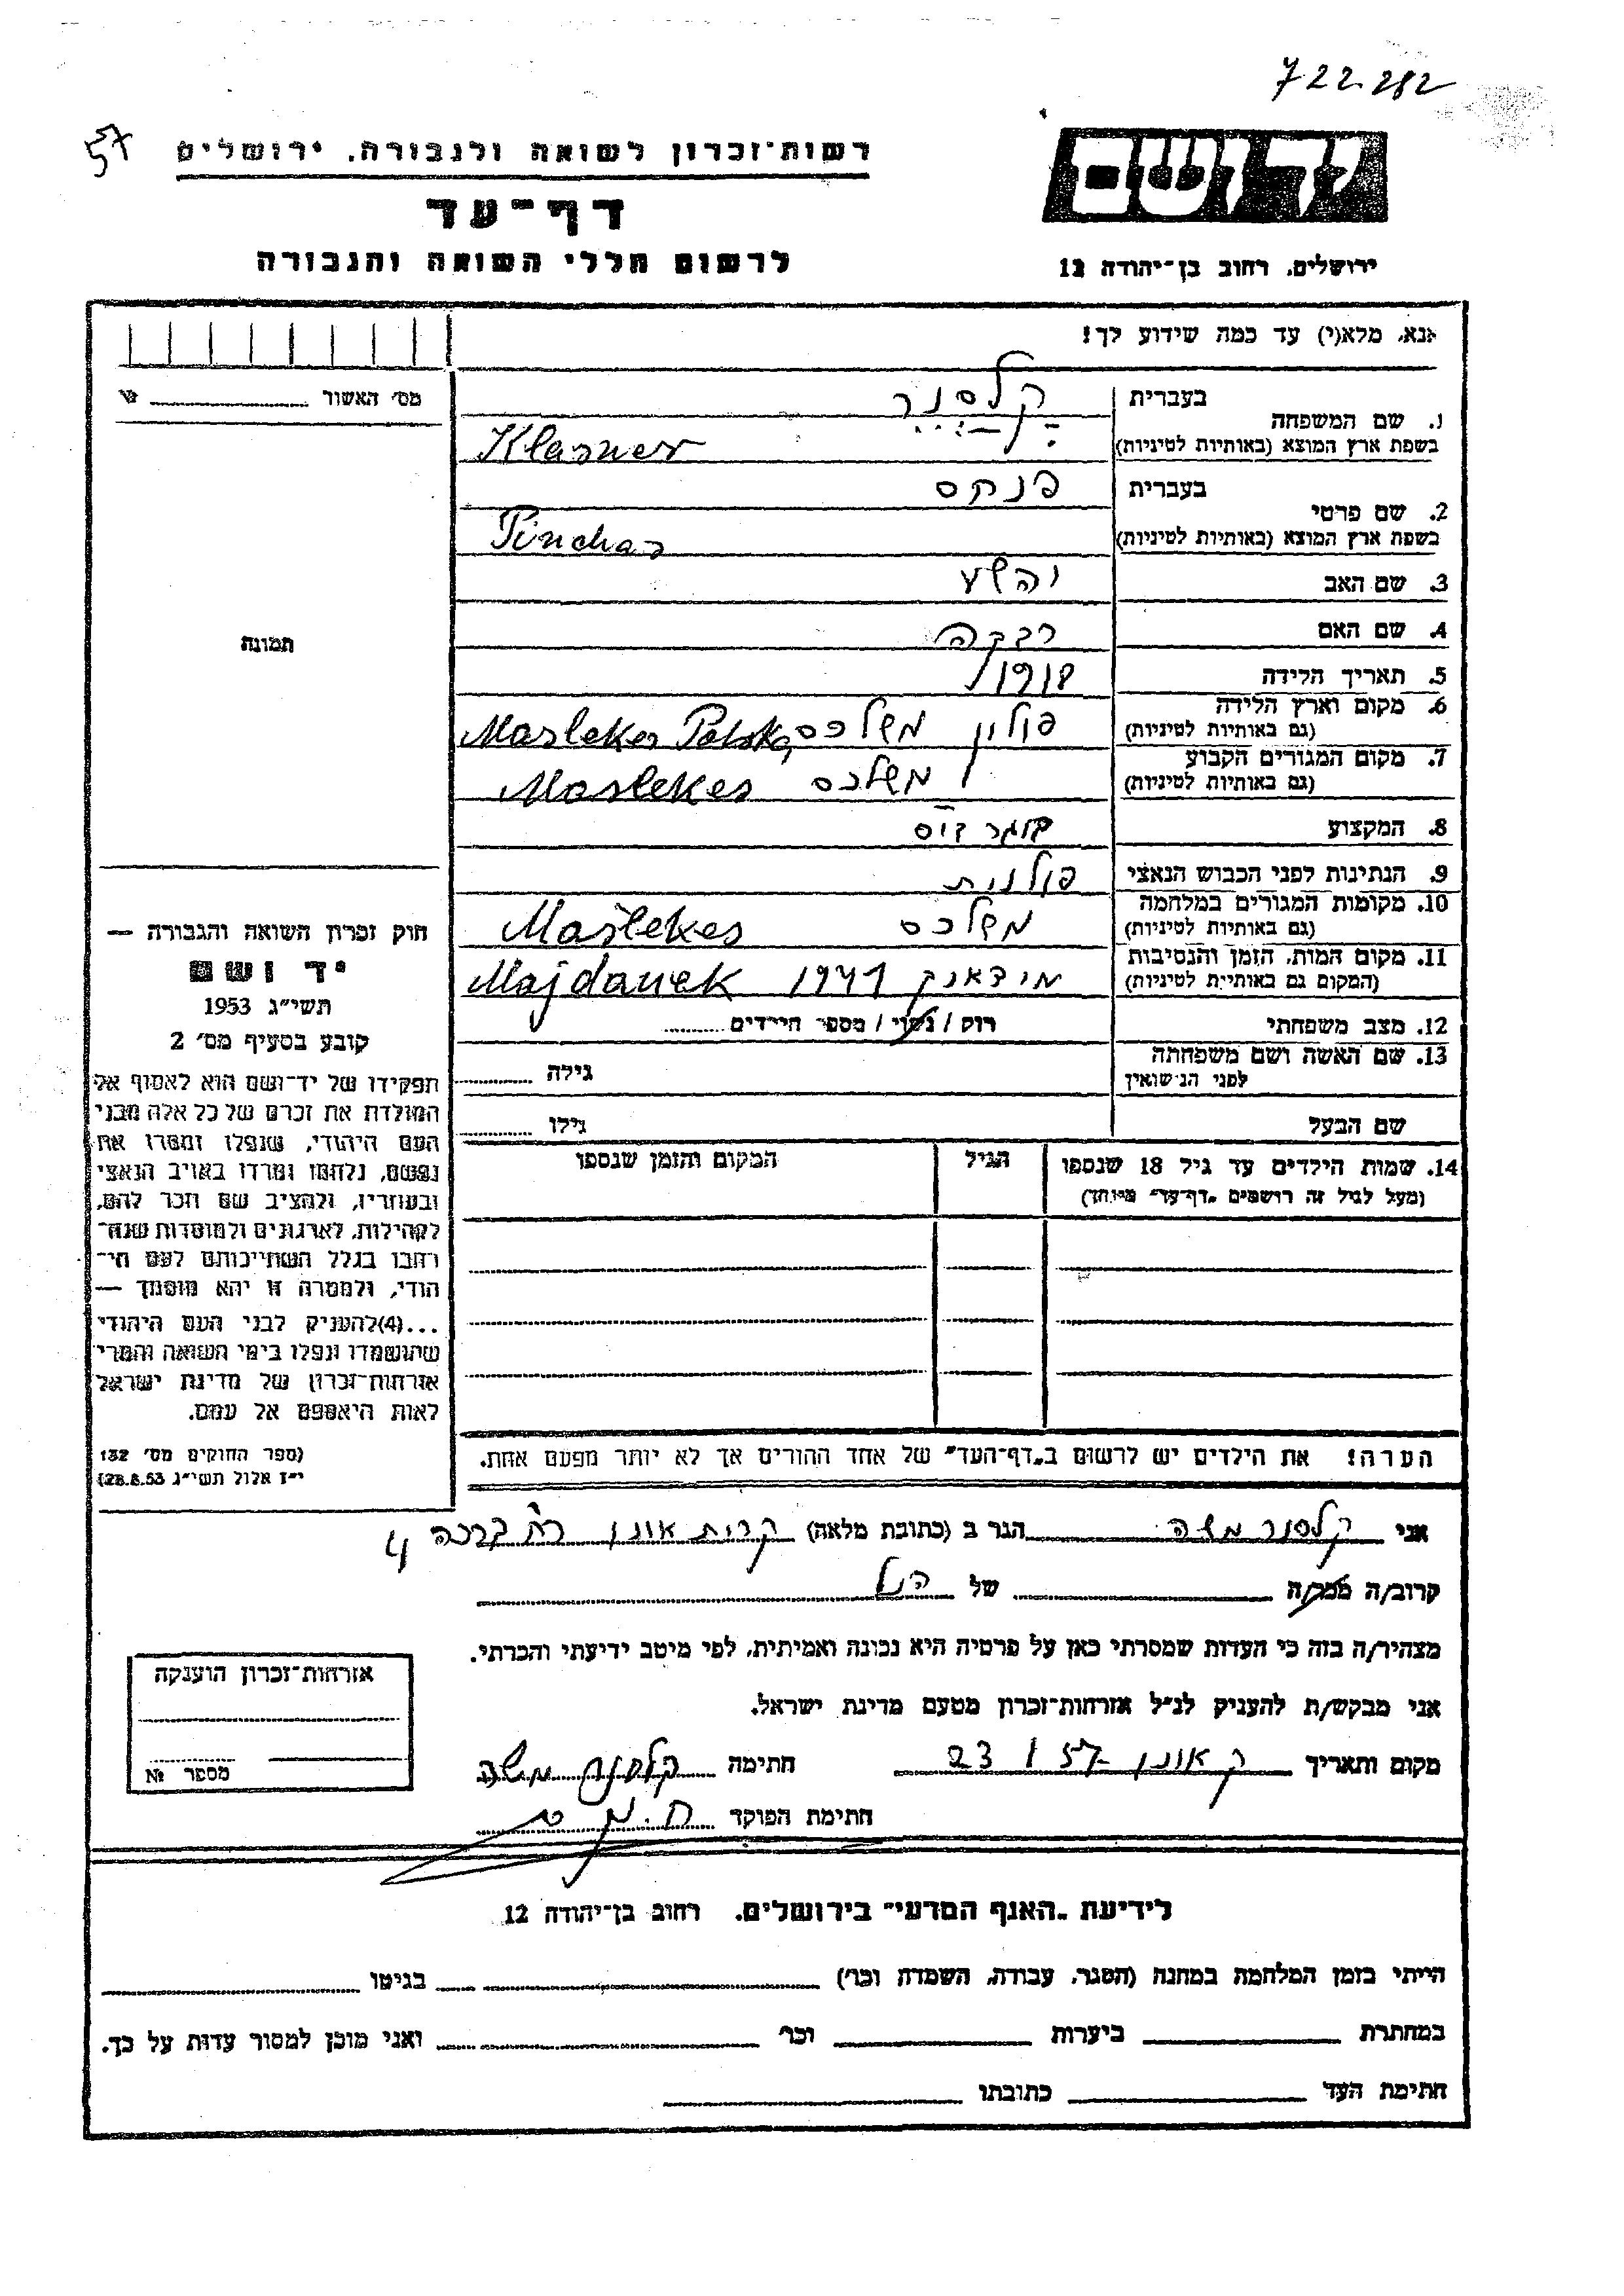 722.282
57
רשות־זכרון לשואה ולגבורה, ירושלים
יד ושם
דף־עד
לרשום חללי השואה והגבורה
ירושלים, רחוב בן־יהודה 12
אנא, מלא(י) עד כמה שידוע לך!
מס׳ האשור
1. שם המשפחה בעברית קלסנר
בשפת ארץ המוצא (באותיות לטיניות) Klasner
2. שם פרטי בעברית פנקס
בשפת ארץ המוצא (באותיות לטיניות) Pinchas
3. שם האב יהשע
4. שם האם רבקה
5. תאריך הלידה 1918
6. מקום וארץ הלידה (גם באותיות לטיניות) פולין משלכס Maslekes Polska
7. מקום המגורים הקבוע (גם באותיות לטיניות) משלכס Maslekes
8. המקצוע
9. הנתינות לפני הכבוש הנאצי פולנית
10. מקומות המגורים במלחמה (גם באותיות לטיניות) משלכס Maślekes
11. מקום המות, הזמן והנסיבות (המקום גם באותיות לטיניות) מידאנק 1941 Majdanek
12. מצב משפחתי רוק / נשוי / מספר הילדים
13. שם האשה ושם משפחתה לפני הנישואין גילה
שם הבעל גילו
14. שמות הילדים עד גיל 18 שנספו הגיל המקום והזמן שנספו
(מעל לגיל זה רושמים „דף־עד״ מיוחד)
הערה! את הילדים יש לרשום ב„דף־העד״ של אחד ההורים אך לא יותר מפעם אחת.
תמונה
חוק זכרון השואה והגבורה —
יד ושם
תשי״ג 1953
קובע בסעיף מס׳ 2
תפקידו של יד־ושם הוא לאסוף אל
המולדת את זכרם של כל אלה מבני
העם היהודי, שנפלו ומסרו את
נפשם, נלחמו ומרדו באויב הנאצי
ובעוזריו, ולהציב שם וזכר להם,
לקהילות, לארגונים ולמוסדות שנח־
רבו בגלל השתייכותם לעם הי־
הודי, ולמטרה זו יהא מוסמך —
...(4)להעניק לבני העם היהודי
שהושמדו ונפלו בימי השואה והמרי
אזרחות־זכרון של מדינת ישראל
לאות היאספם אל עמם.
(ספר החוקים מס׳ 132
י״ז אלול תשי״ג 28.8.53)
אני קלסנר משה הגר ב (כתובת מלאה) קרית אונו רח׳ ברכה 4
קרוב/ה מכר/ה של הנל
מצהיר/ה בזה כי העדות שמסרתי כאן על פרטיה היא נכונה ואמיתית, לפי מיטב ידיעתי והכרתי.
אני מבקש/ת להעניק לנ״ל אזרחות־זכרון מטעם מדינת ישראל.
מקום ותאריך ק אונו 23 1 57 חתימה קלסנר משה
חתימת הפוקד
אזרחות־זכרון הוענקה
מספר №
לידיעת „האגף המדעי״ בירושלים, רחוב בן־יהודה 12
הייתי בזמן המלחמה במחנה (הסגר, עבודה, השמדה וכו׳) בגיטו
במחתרת ביערות וכו׳ ואני מוכן למסור עדות על כך.
חתימת העד כתובתו